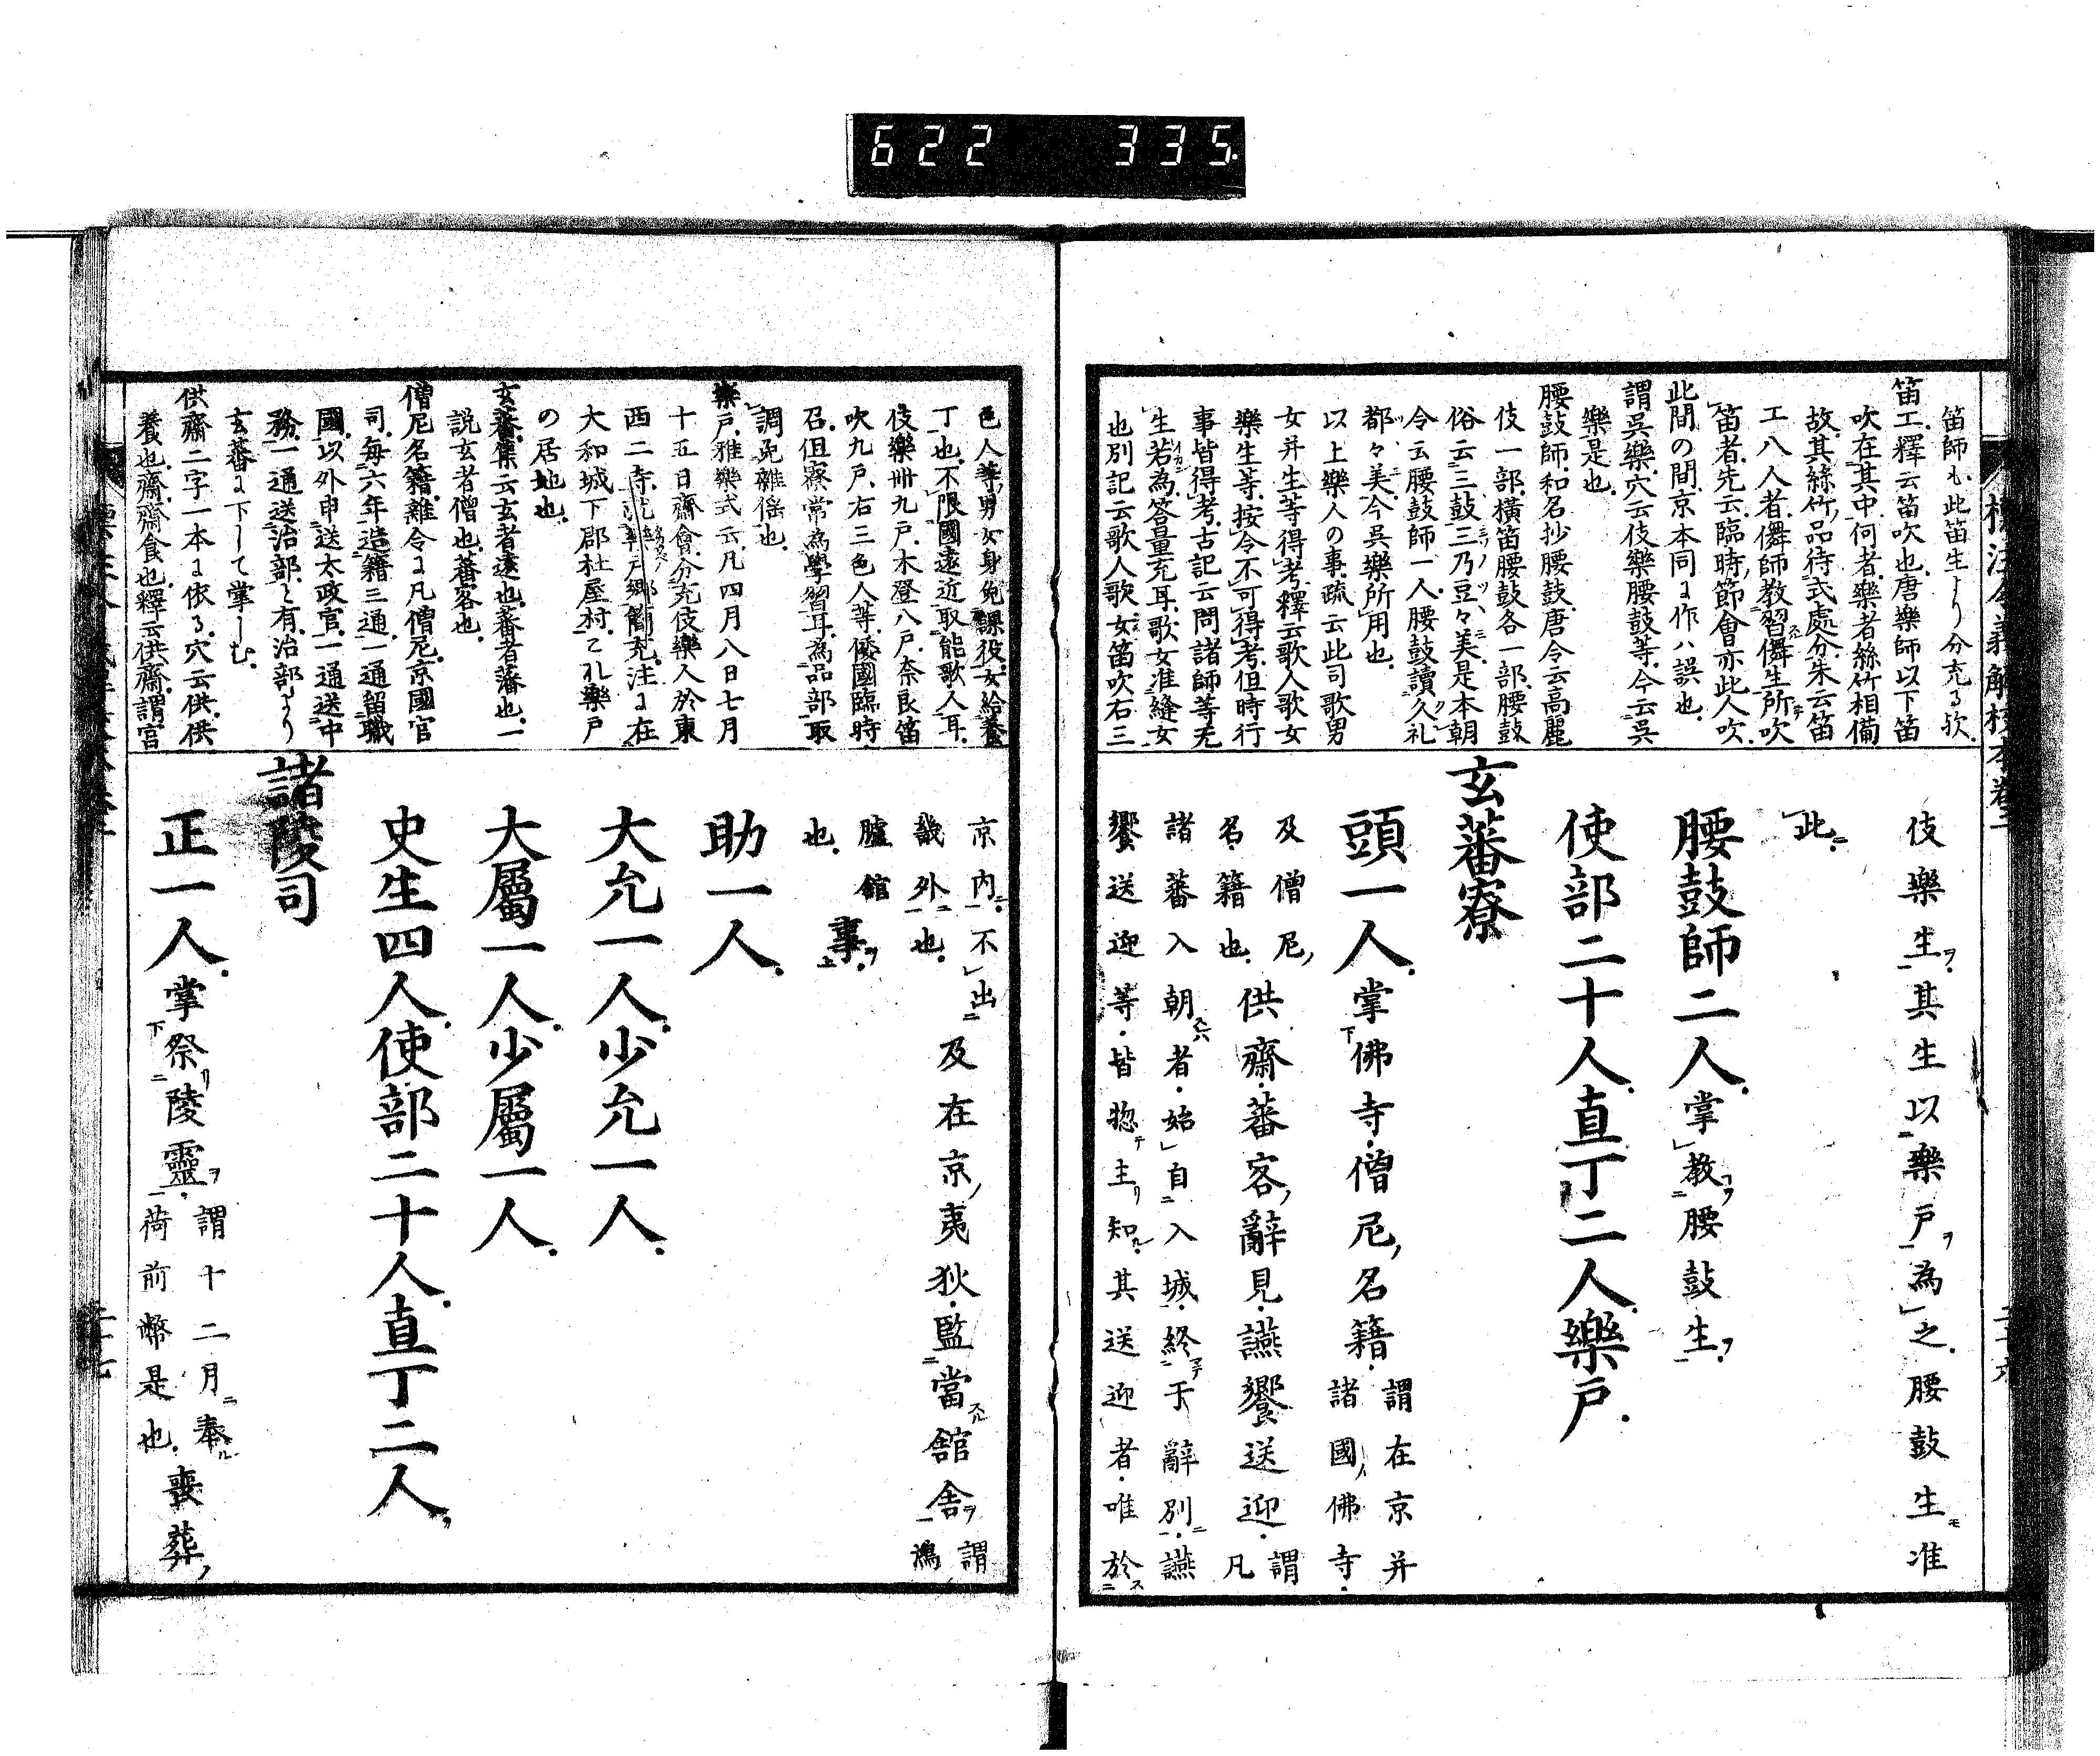 622 335
標注令義解校本卷二
笛師も此笛生より分充る欤
笛工釋云笛吹也唐樂師以下笛
吹在其中何者樂者絲竹相備
故其絲竹品待式處分朱云笛
工八人者儛師教習儛生所吹
笛者先云臨時節會亦此人吹
此間の間京本同に作ハ誤也
謂吳樂穴云伎樂腰鼓等今云吳
樂是也
腰鼓師和名抄腰鼓唐令云高麗
伎一部横笛腰鼓各一部腰鼓
俗云三鼓三乃豆々美是本朝
令云腰鼓師一人腰鼓讀久礼
都々美今吳樂所用也
以上樂人の事疏云此司歌男
女并生等得考釋云歌人歌女
樂生等按令不可得考但時行
事皆得考古記云問諸師等无
生若為答量充耳歌女准縫女
也別記云歌人歌女笛吹右三
伎樂生其生以樂戶為之腰鼓生准
此
腰鼓師二人掌教腰鼓生
使部二十人直丁二人樂戶
玄蕃寮
頭一人掌佛寺僧尼名籍謂在京并
諸國佛寺
及僧尼
名籍也供齋蕃客辭見讌饗送迎謂
凡
諸蕃入朝者始自入城終于辭別讌
饗送迎等皆惣主知其送迎者唯於
色人等男女身免課役女給養
丁也不限國遠近取能歌人耳
伎樂卌九戶木登八戶奈良笛
吹九戶右三色人等倭國臨時
召但寮常為學習耳為品部取
調免雜徭也
樂戶雅樂式云凡四月八日七月
十五日齋會分充伎樂人於東
西二寺戶鄉簡充注に在
大和城下郡杜屋村こハ樂戶
の居地也
玄蕃集云玄者遠也蕃者藩也一
説玄者僧也蕃客也
僧尼名籍雜令に凡僧尼京國官
司每六年造籍三通一通留職
國以外申送太政官一通送中
務一通送治部と有治部より
玄蕃に下して掌しむ
供齋二字一本に依る穴云供供
養也齋齋食也釋云供齋謂官
京內不出
畿外也及在京夷狄監當舘舍謂
鴻
臚舘
也事
助一人
大允一人少允一人
大屬一人少屬一人
史生四人使部二十人直丁二人
諸陵司
正一人掌祭陵靈謂十二月奉
荷前幣是也喪葬